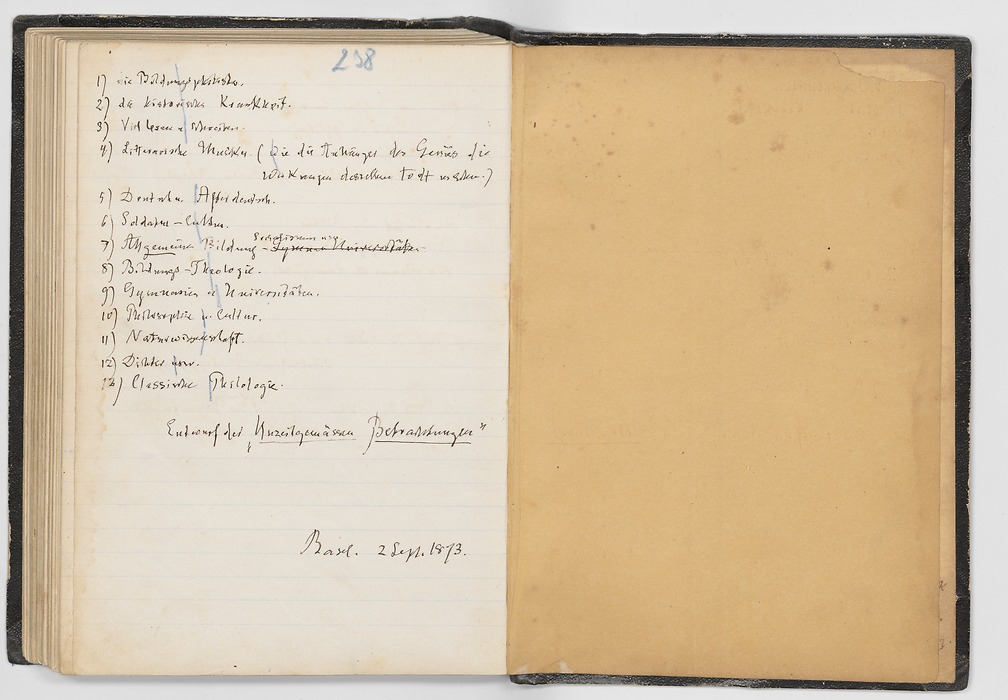 238
1) die Bildungsphilister.
2) die historische Krankheit.
3) Viel lesen u. schreiben.
4) Litterarische Musiker (wie die Anhänger des Genius die
Wirkungen desselben todt machen.)
5) Deutsch u. Afterdeutsch.
6) Soldaten-Cultur.
7) Allgemeine Bildung – Socialismus usw. Universitäten.
8) Bildungs-Theologie.
9) Gymnasien u. Universitäten.
10) Philosophie u. Cultur.
11) Naturwissenschaft.
12) Dichter usw.
13) Classische Philologie.
Entwurf der „Unzeitgemässen Betrachtungen"
Basel. 2 Sept. 1873.